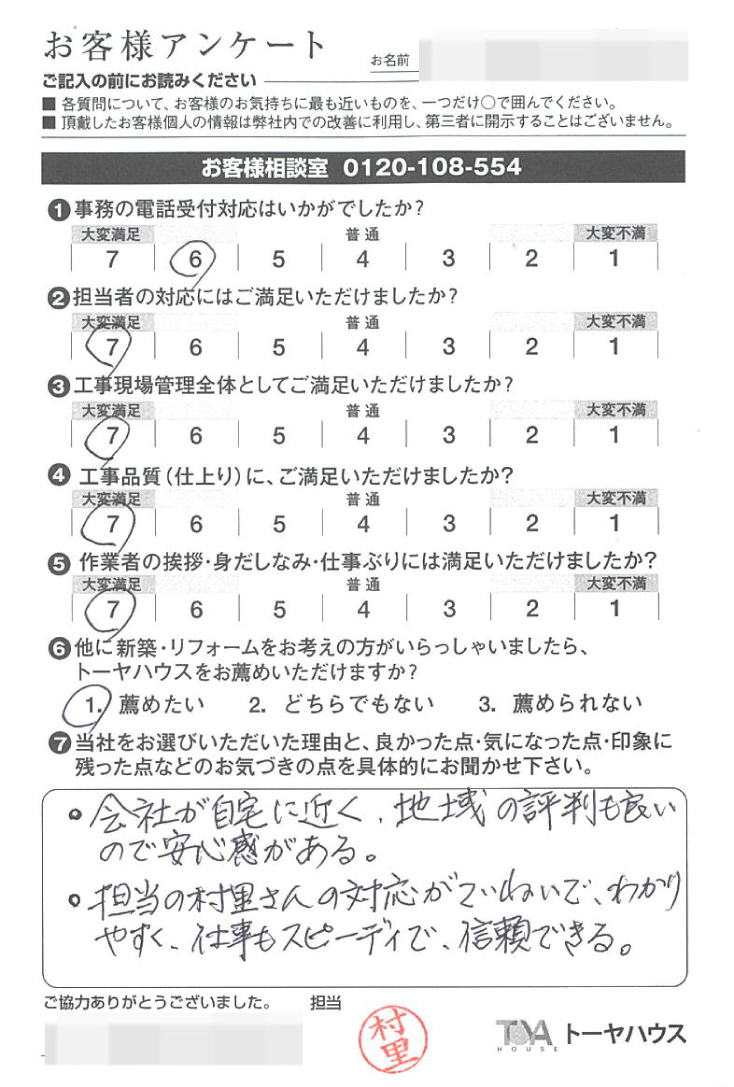 お客様アンケート
お名前
ご記入の前にお読みください
■ 各質問について、お客様のお気持ちに最も近いものを、一つだけ○で囲んでください。
■ 頂戴したお客様個人の情報は弊社内での改善に利用し、第三者に開示することはございません。
お客様相談室 0120-108-554
❶事務の電話受付対応はいかがでしたか?
大変満足 普通 大変不満
7 6 5 4 3 2 1
❷担当者の対応にはご満足いただけましたか?
大変満足 普通 大変不満
7 6 5 4 3 2 1
❸工事現場管理全体としてご満足いただけましたか?
大変満足 普通 大変不満
7 6 5 4 3 2 1
❹ 工事品質(仕上り)に、ご満足いただけましたか?
大変満足 普通 大変不満
7 6 5 4 3 2 1
❺ 作業者の挨拶・身だしなみ・仕事ぶりには満足いただけましたか?
大変満足 普通 大変不満
7 6 5 4 3 2 1
❻他に新築・リフォームをお考えの方がいらっしゃいましたら、
トーヤハウスをお薦めいただけますか?
1. 薦めたい 2. どちらでもない 3. 薦められない
❼当社をお選びいただいた理由と、良かった点・気になった点・印象に
残った点などのお気づきの点を具体的にお聞かせ下さい。
。会社が自宅に近く、地域の評判も良い
ので安心感がある。
。担当の村里さんの対応がていねいで、わかり
やすく、仕事もスピーディで、信頼できる。
ご協力ありがとうございました。 担当
村里
TOYA HOUSE トーヤハウス